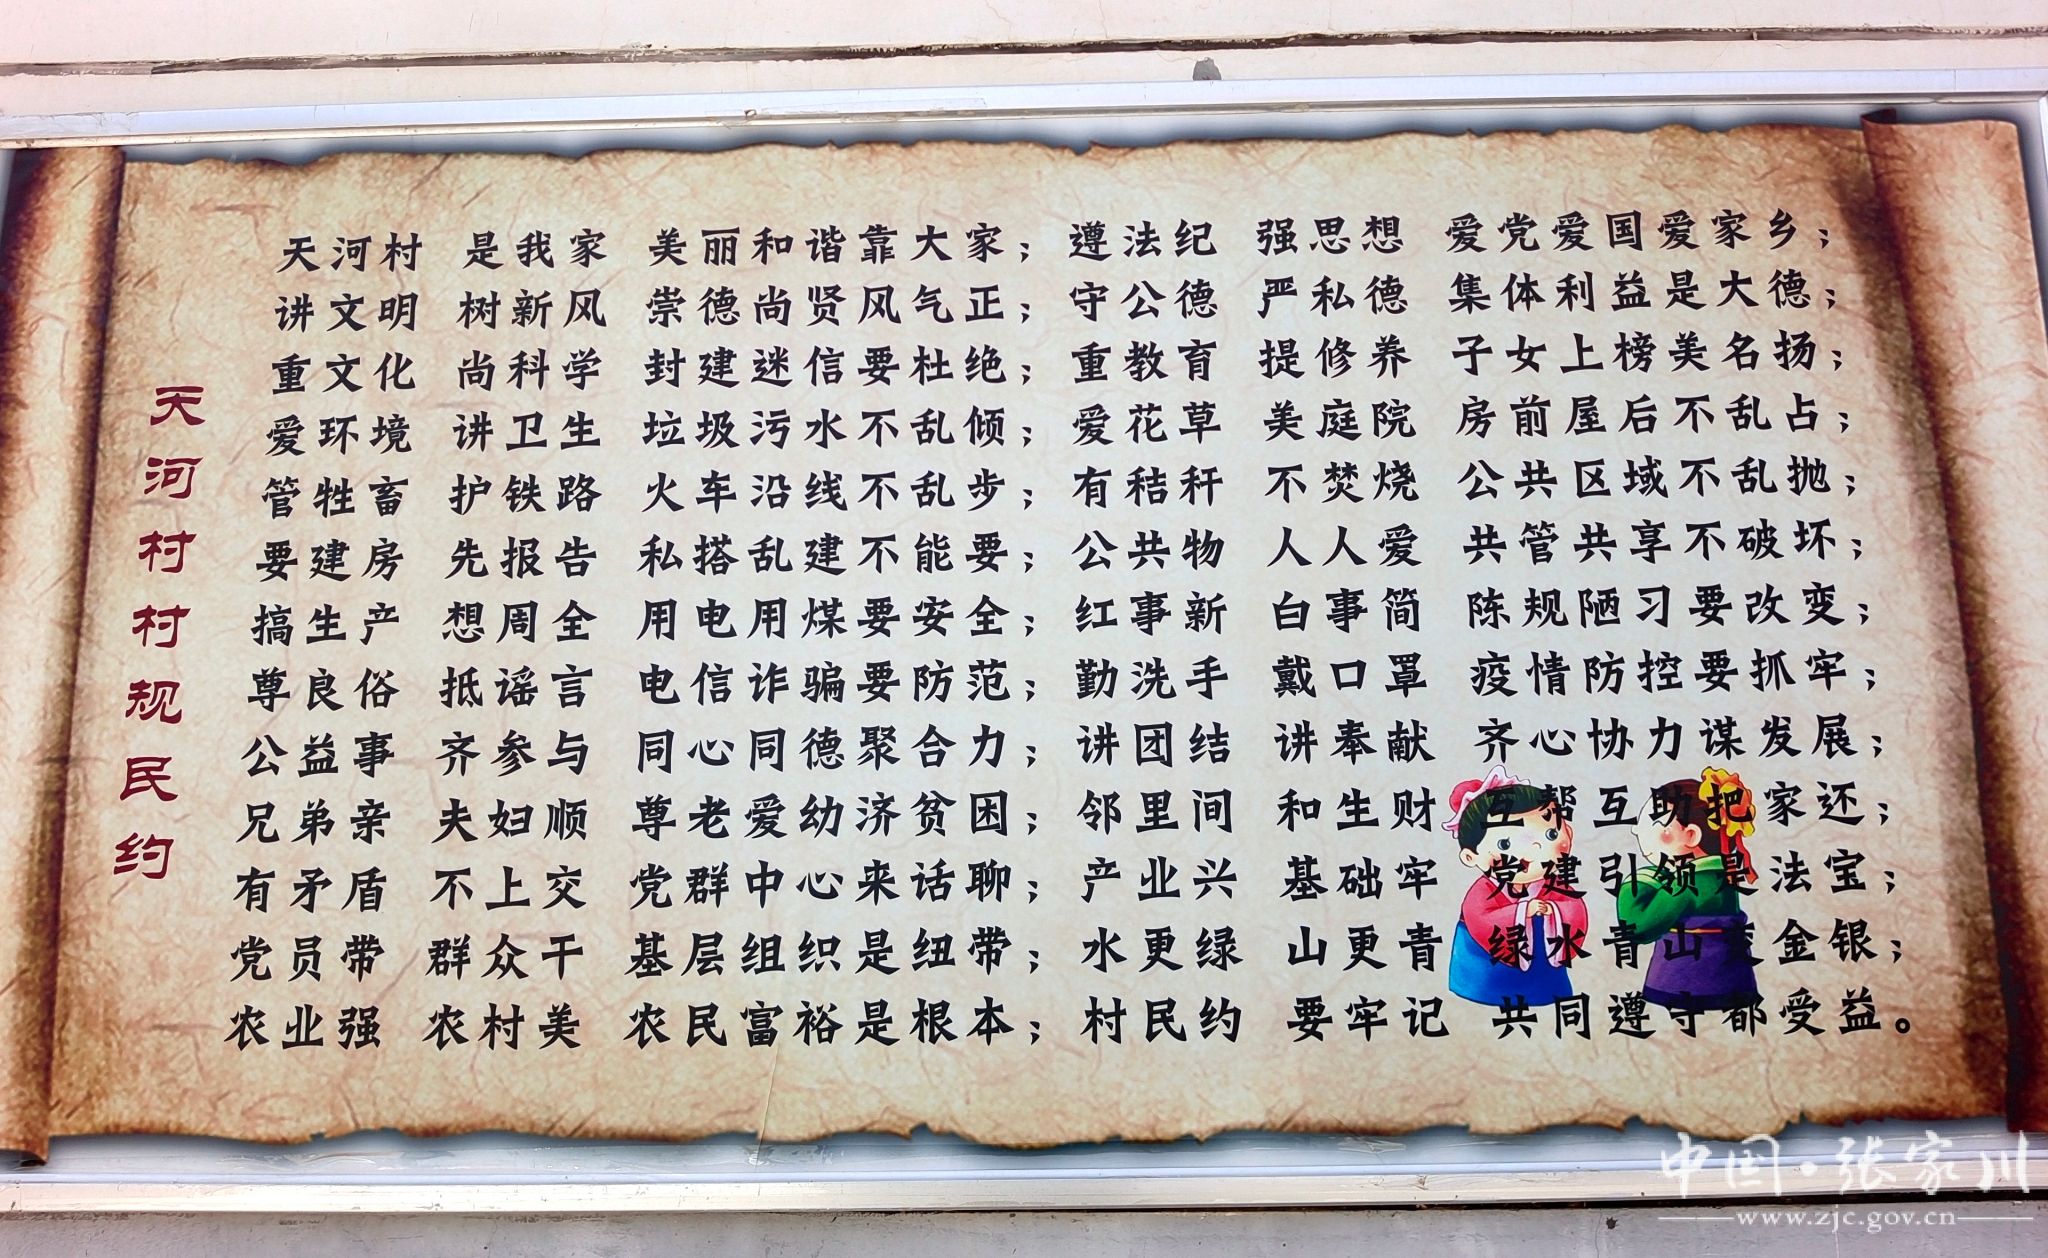 天河村村规民约
天河村 是我家 美丽和谐靠大家；遵法纪 强思想 爱党爱国爱家乡；
讲文明 树新风 崇德尚贤风气正；守公德 严私德 集体利益是大德；
重文化 尚科学 封建迷信要杜绝；重教育 提修养 子女上榜美名扬；
爱环境 讲卫生 垃圾污水不乱倾；爱花草 美庭院 房前屋后不乱占；
管牲畜 护铁路 火车沿线不乱步；有秸秆 不焚烧 公共区域不乱抛；
要建房 先报告 私搭乱建不能要；公共物 人人爱 共管共享不破坏；
搞生产 想周全 用电用煤要安全；红事新 白事简 陈规陋习要改变；
尊良俗 抵谣言 电信诈骗要防范；勤洗手 戴口罩 疫情防控要抓牢；
公益事 齐参与 同心同德聚合力；讲团结 讲奉献 齐心协力谋发展；
兄弟亲 夫妇顺 尊老爱幼济贫困；邻里间 和生财 互帮互助把家还；
有矛盾 不上交 党群中心来话聊；产业兴 基础牢 党建引领是法宝；
党员带 群众干 基层组织是纽带；水更绿 山更青 绿水青山变金银；
农业强 农村美 农民富裕是根本；村民约 要牢记 共同遵守都受益。
中国·张家川
www.zjc.gov.cn